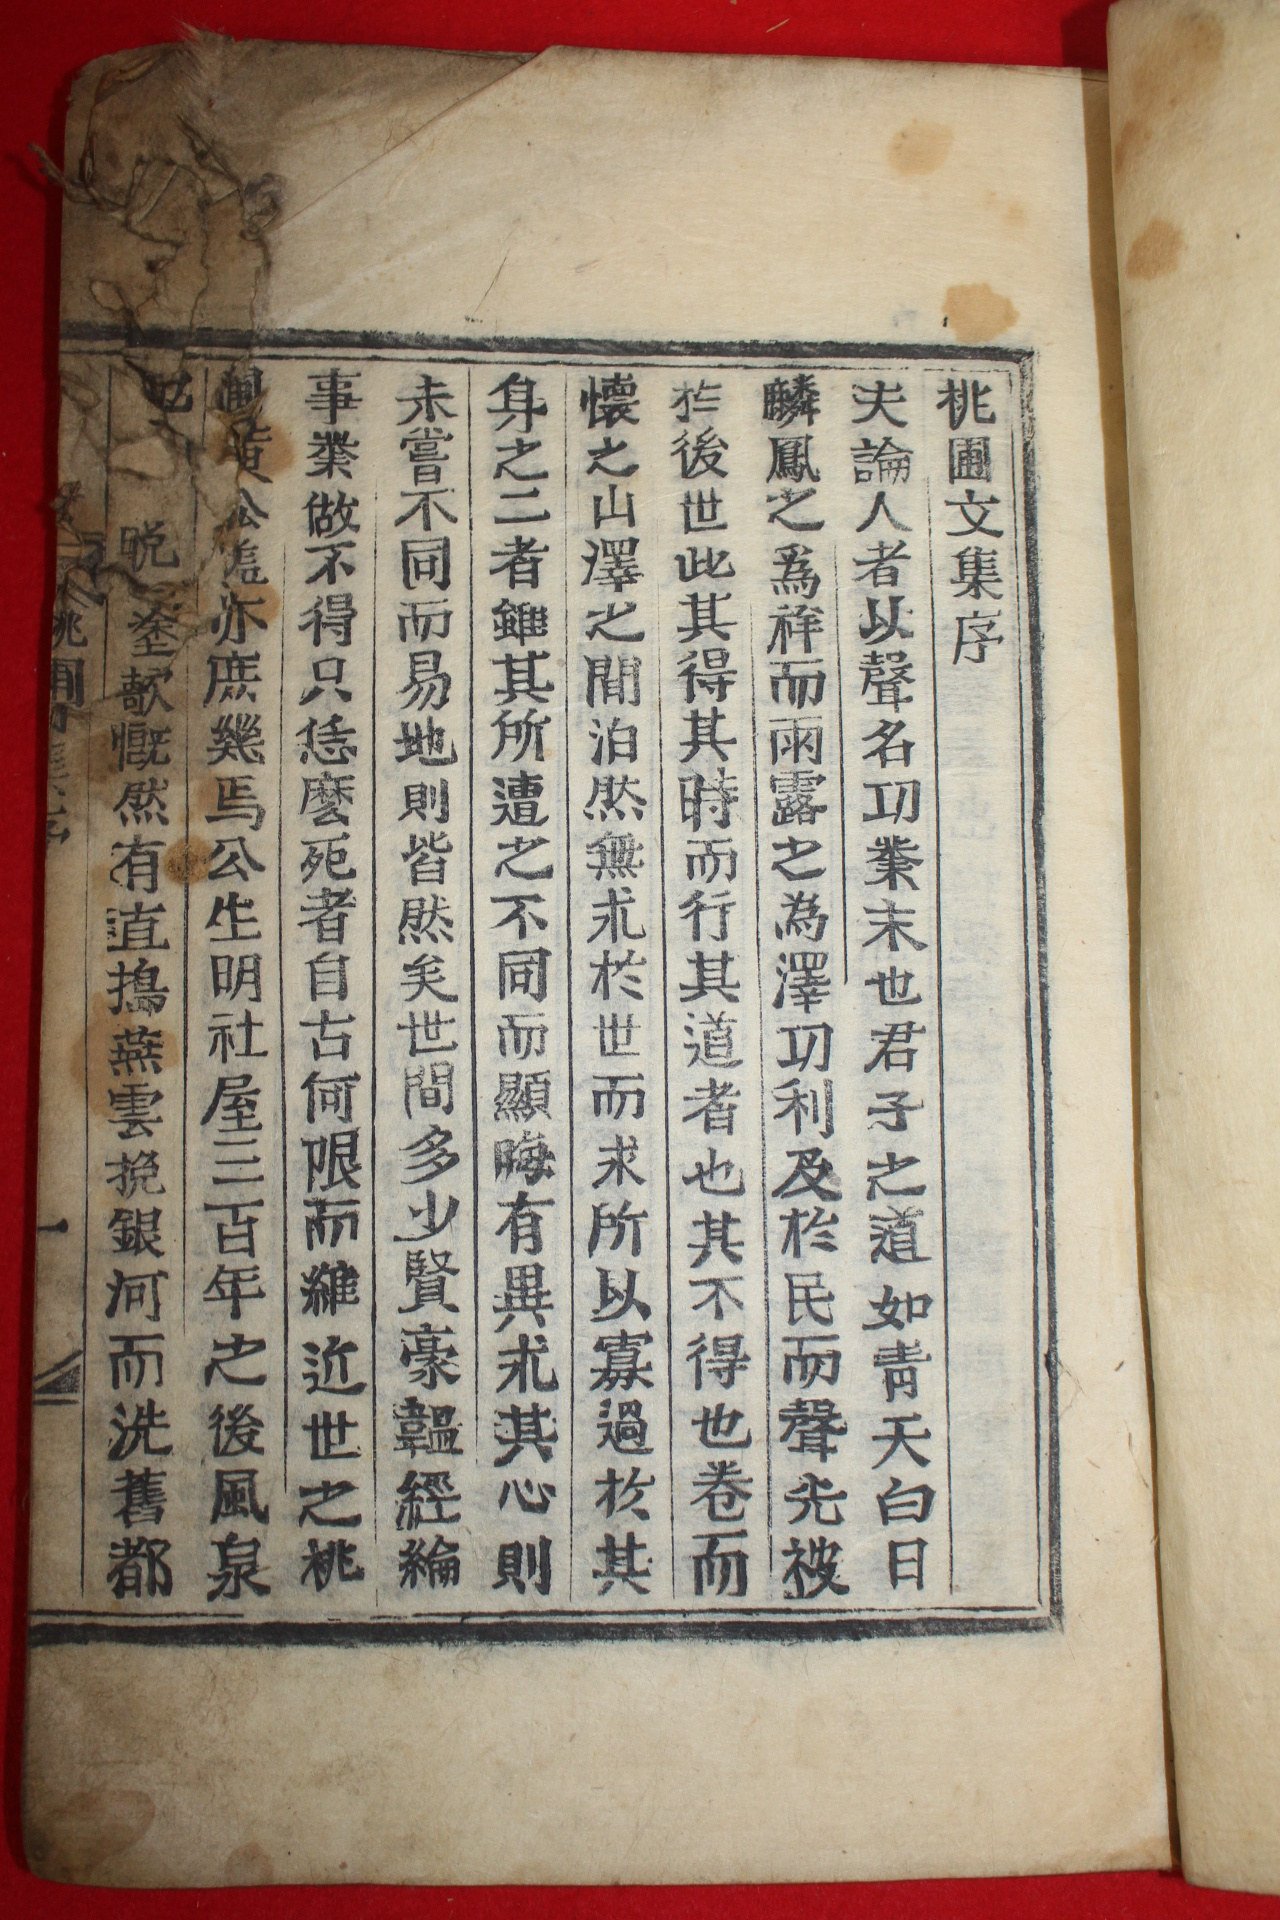 桃圃文集序
夫論人者以聲名功業末也君子之道如靑天白日
麟鳳之爲祥而雨露之為澤功利及於民而聲光被
於後世此其得其時而行其道者也其不得也卷而
懷之山澤之間泊然無求於世而求所以寡過於其
身之二者雖其所遭之不同而顯晦有異求其心則
未嘗不同而易地則皆然矣世間多少賢豪韞經綸
事業做不得只恁麽死者自古何限而雖近世之桃
黃公 亦庶幾焉公生明社屋三百年之後風泉
晩 塗歔慨然有直搗燕雲挽銀河而洗舊都
桃圃 序 一